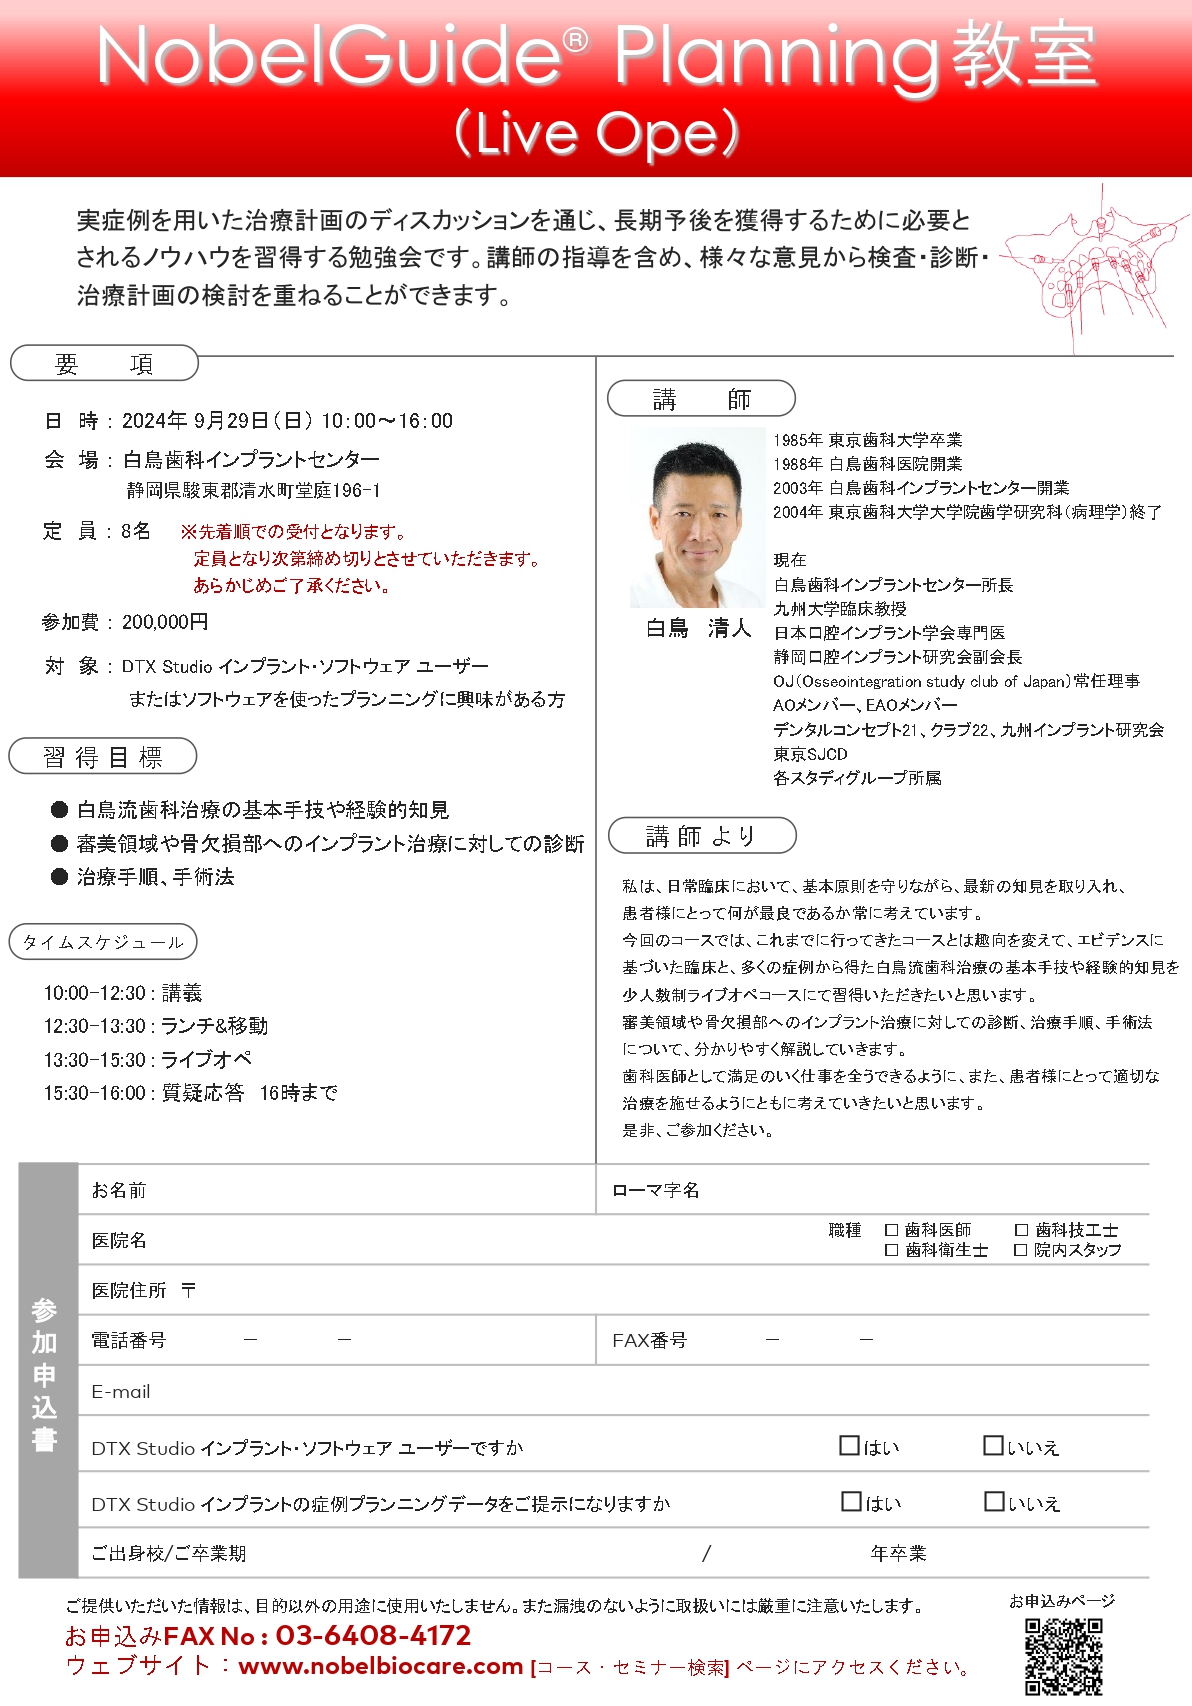 NobelGuide® Planning教室
（Live Ope）
実症例を用いた治療計画のディスカッションを通じ、長期予後を獲得するために必要と
されるノウハウを習得する勉強会です。講師の指導を含め、様々な意見から検査・診断・
治療計画の検討を重ねることができます。
要　項
日　時： 2024年 9月29日（日） 10：00～16：00
会　場： 白鳥歯科インプラントセンター
静岡県駿東郡清水町堂庭196-1
定　員： 8名　※先着順での受付となります。
定員となり次第締め切りとさせていただきます。
あらかじめご了承ください。
参加費： 200,000円
対　象： DTX Studio インプラント・ソフトウェア ユーザー
またはソフトウェアを使ったプランニングに興味がある方
習得目標
● 白鳥流歯科治療の基本手技や経験的知見
● 審美領域や骨欠損部へのインプラント治療に対しての診断
● 治療手順、手術法
タイムスケジュール
10:00-12:30 : 講義
12:30-13:30 : ランチ&移動
13:30-15:30 : ライブオペ
15:30-16:00 : 質疑応答　16時まで
講　師
白鳥　清人
1985年 東京歯科大学卒業
1988年 白鳥歯科医院開業
2003年 白鳥歯科インプラントセンター開業
2004年 東京歯科大学大学院歯学研究科（病理学）終了
現在
白鳥歯科インプラントセンター所長
九州大学臨床教授
日本口腔インプラント学会専門医
静岡口腔インプラント研究会副会長
OJ（Osseointegration study club of Japan）常任理事
AOメンバー、EAOメンバー
デンタルコンセプト21、クラブ22、九州インプラント研究会
東京SJCD
各スタディグループ所属
講師より
私は、日常臨床において、基本原則を守りながら、最新の知見を取り入れ、
患者様にとって何が最良であるか常に考えています。
今回のコースでは、これまでに行ってきたコースとは趣向を変えて、エビデンスに
基づいた臨床と、多くの症例から得た白鳥流歯科治療の基本手技や経験的知見を
少人数制ライブオペコースにて習得いただきたいと思います。
審美領域や骨欠損部へのインプラント治療に対しての診断、治療手順、手術法
について、分かりやすく解説していきます。
歯科医師として満足のいく仕事を全うできるように、また、患者様にとって適切な
治療を施せるようにともに考えていきたいと思います。
是非、ご参加ください。
参加申込書
お名前　ローマ字名
医院名　職種　□ 歯科医師　□ 歯科技工士
□ 歯科衛生士　□ 院内スタッフ
医院住所　〒
電話番号　－　－　FAX番号　－　－
E-mail
DTX Studio インプラント・ソフトウェア ユーザーですか　□はい　□いいえ
DTX Studio インプラントの症例プランニングデータをご提示になりますか　□はい　□いいえ
ご出身校/ご卒業期　/　年卒業
ご提供いただいた情報は、目的以外の用途に使用いたしません。また漏洩のないように取扱いには厳重に注意いたします。
お申込みページ
お申込みFAX No : 03-6408-4172
ウェブサイト：www.nobelbiocare.com [コース・セミナー検索] ページにアクセスください。